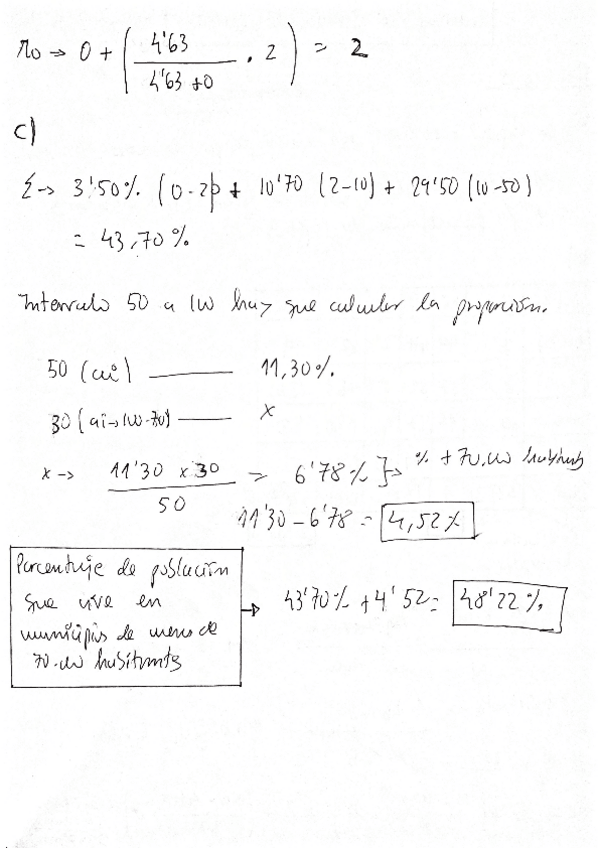 Mo → 0 + ( 4'63 / 4'63 + 0 · 2 ) = 2
c)
Σ → 3'50% (0-2) + 10'70 (2-10) + 29'50 (10-50)
= 43,70%
Intervalo 50 a 100 hay que calcular la proporción.
50 (ai) —— 11,30%.
30 (ai → 100-70) —— x
x → 11'30 x 30 / 50 = 6'78% } → % + 70.000 habitants
11'30 - 6'78 = 4,52%
Porcentaje de población
que vive en
municipios de menos de
70.000 habitants
→ 43'70% + 4'52 = 48'22%